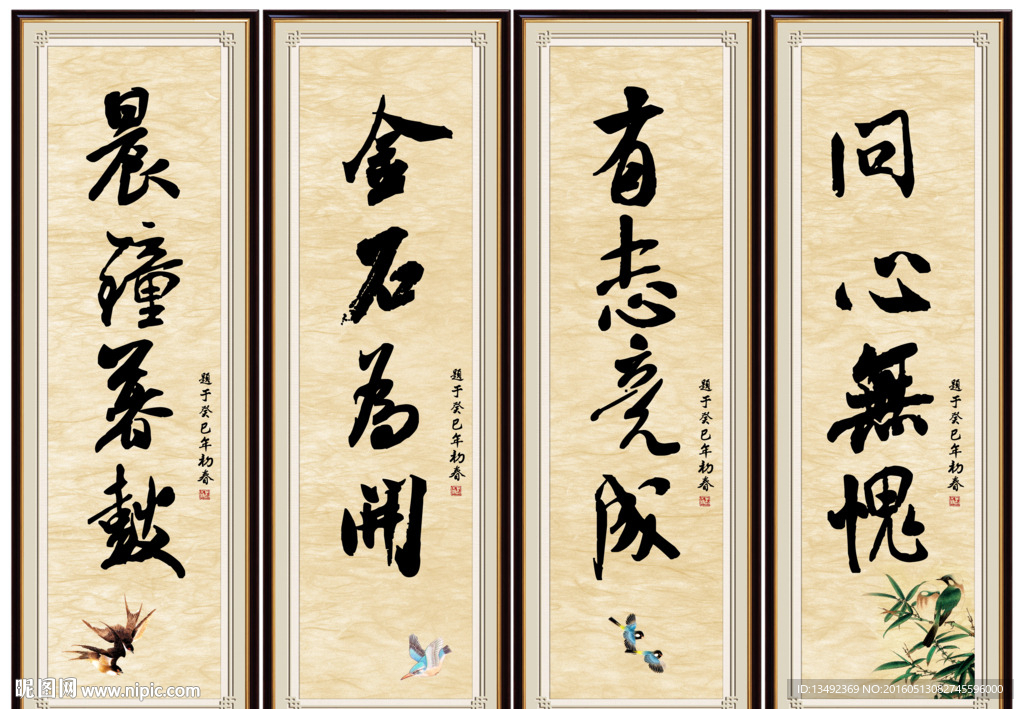 晨鐘暮鼓
題于癸巳年初春
金石為開
題于癸巳年初春
有志竟成
題于癸巳年初春
問心無愧
題于癸巳年初春
昵图网 www.nipic.com
ID:13492369 NO:20160513082745596000